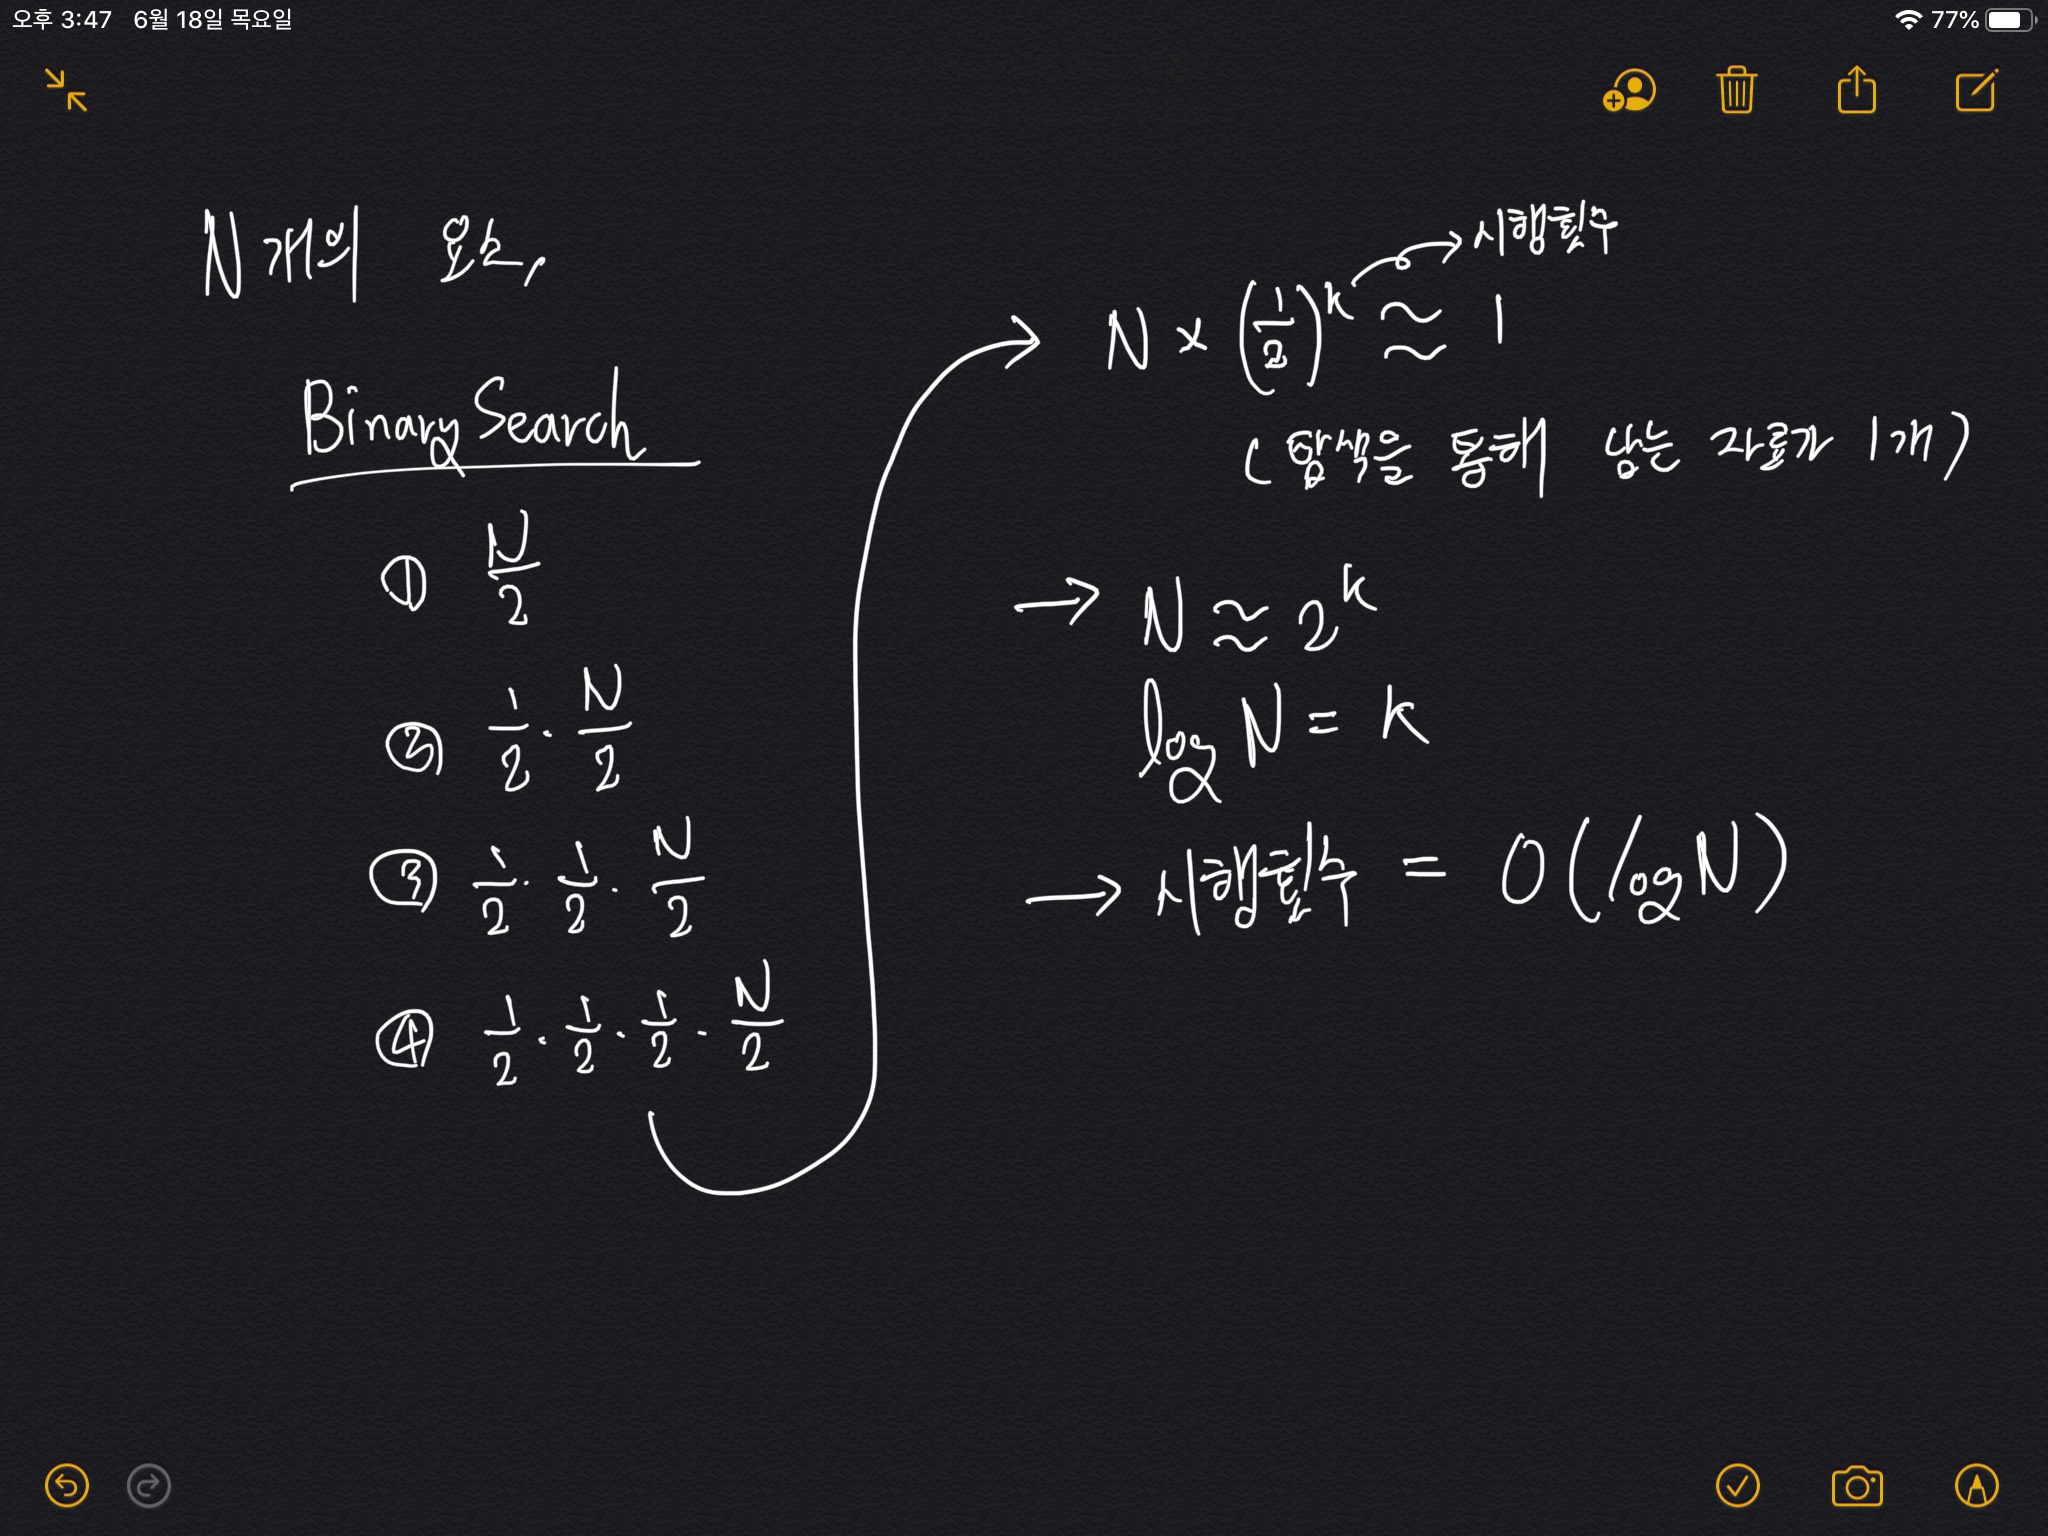 오후 3:47 6월 18일 목요일
77%
N개의 요소,
Binary Search
① N/2
② 1/2 · N/2
③ 1/2 · 1/2 · N/2
④ 1/2 · 1/2 · 1/2 · N/2
→ 시행횟수
→ N × (1/2)^k ≈ 1
(탐색을 통해 남는 자료가 1개)
→ N ≈ 2^k
log N = k
→ 시행횟수 = O(log N)